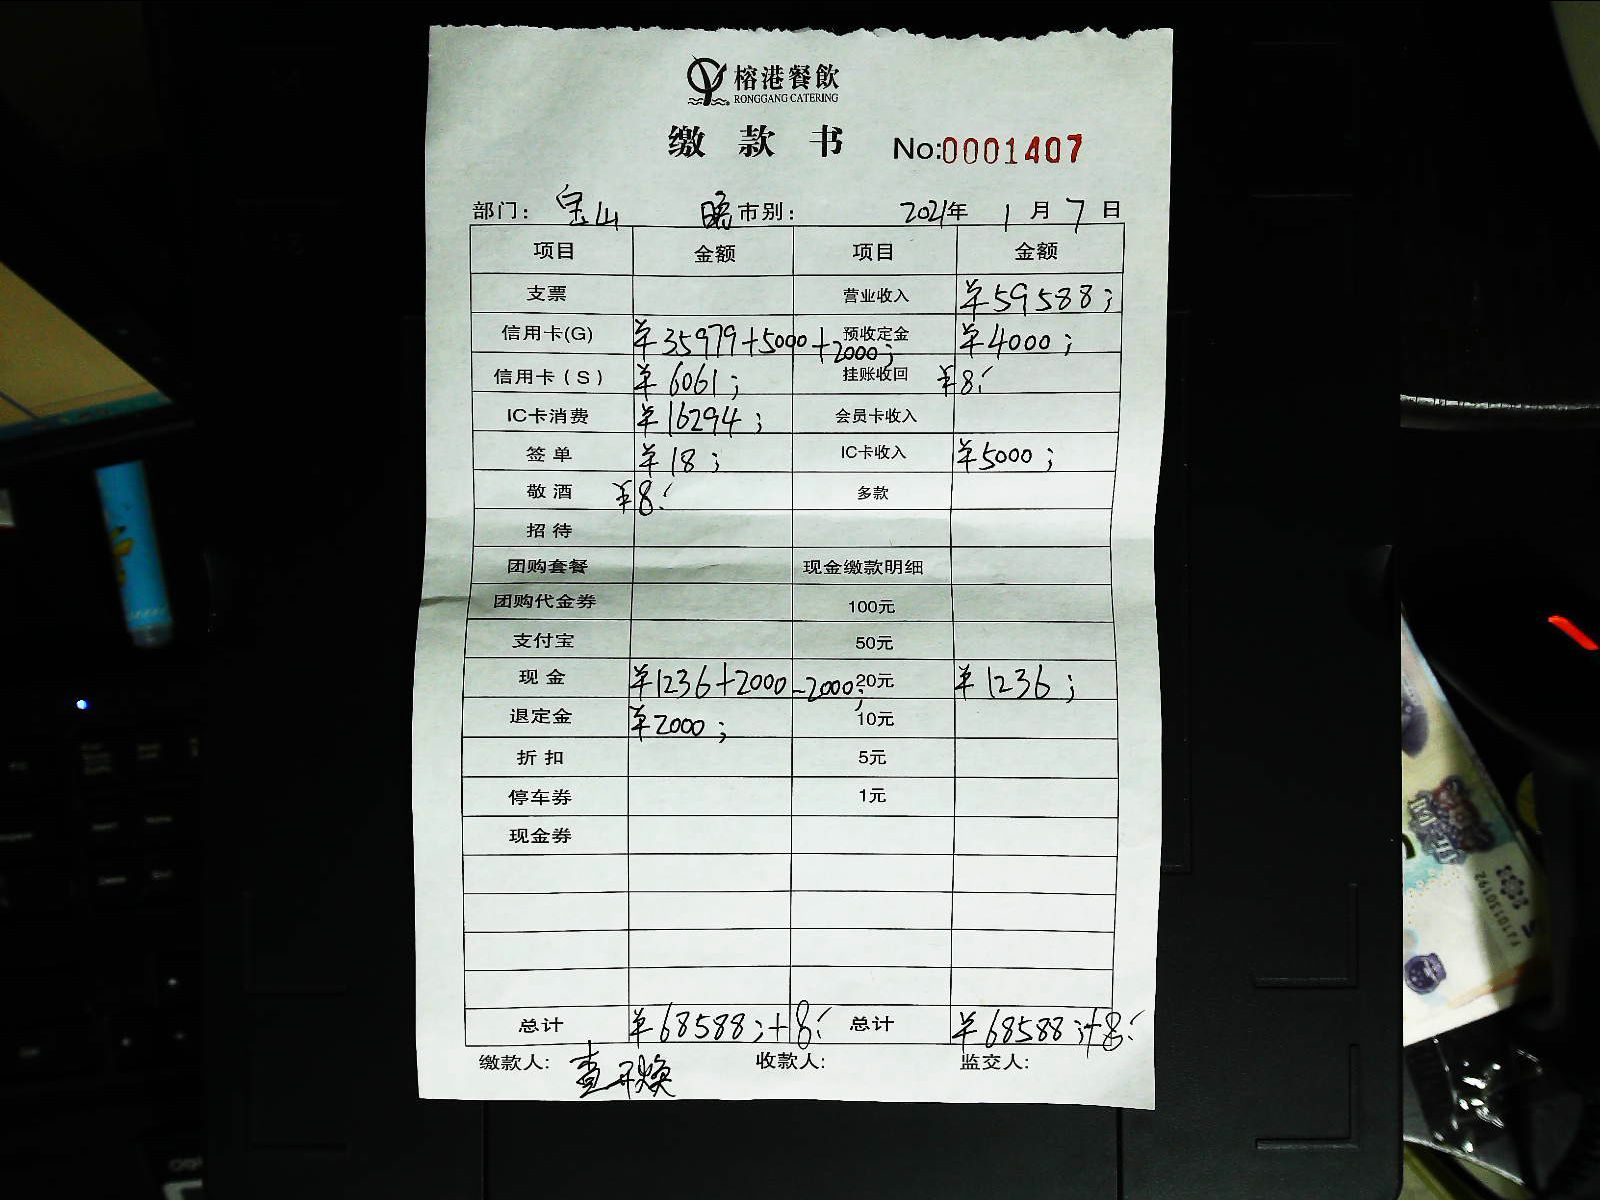 榕港餐飲
RONGGANG CATERING
缴 款 书 No:0001407
部门: 宝山 晚市别: 2021年 1月 7日
项目 金额 项目 金额
支票 营业收入 ¥59588;
信用卡(G) ¥35979+5000+2000; 预收定金 ¥4000;
信用卡(S) ¥6061; 挂账收回 ¥8;
IC卡消费 ¥16294; 会员卡收入
签单 ¥18; IC卡收入 ¥5000;
敬酒 ¥8; 多款
招待
团购套餐 现金缴款明细
团购代金券 100元
支付宝 50元
现金 ¥1236+2000-2000; 20元 ¥1236;
退定金 ¥2000; 10元
折扣 5元
停车券 1元
现金券
总计 ¥68588;+8; 总计 ¥68588;+8;
缴款人: 查开焕 收款人: 监交人: